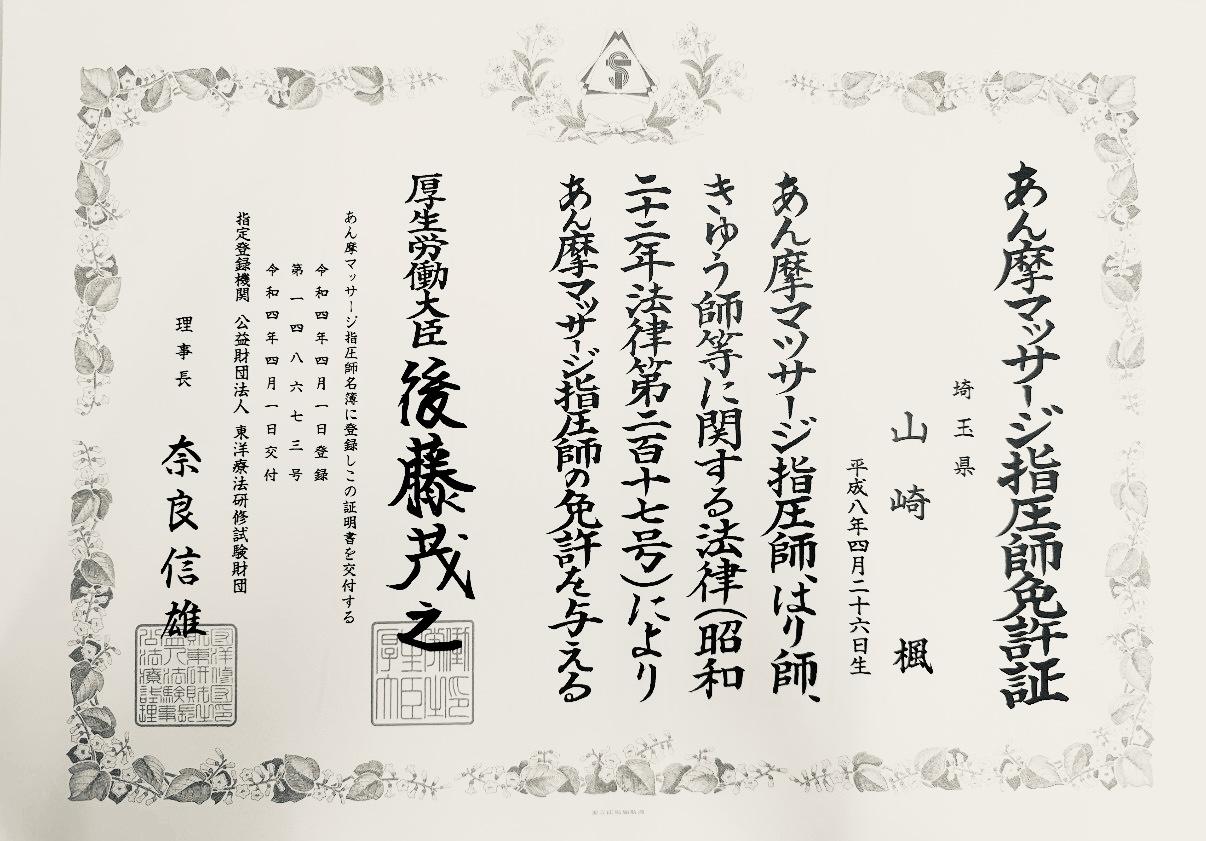 あん摩マッサージ指圧師免許証
埼玉県
山崎 楓
平成八年四月二十六日生
あん摩マツサージ指圧師、はり師、
きゆう師等に関する法律(昭和
二十二年法律第二百十七号)により
あん摩マッサージ指圧師の免許を与える
厚生労働大臣 後藤茂之
あん摩マッサージ指圧師名簿に登録しこの証明書を交付する
令和四年四月一日登録
第一四八六七三号
令和四年四月一日交付
指定登録機関 公益財団法人 東洋療法研修試験財団
理事長 奈良信雄